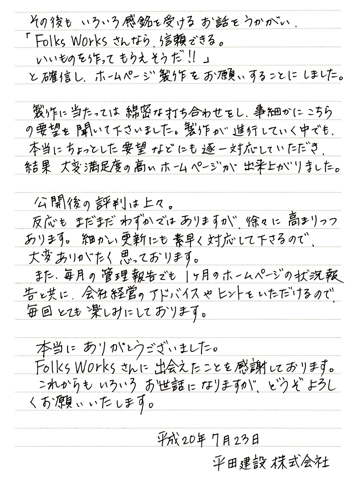 その後も いろいろ感銘を受ける お話をうかがい、
「Folks Works さんなら、信頼できる。
いいものを作って もらえそうだ!!」
と確信し、ホームページ製作を お願いすることにしました。
製作に当たっては 綿密な打ち合わせをし、事細かに こちら
の要望を 聞いて下さいました。製作が 進行していく中でも、
本当に ちょっとした 要望 などにも 逐一対応していただき、
結果 大変満足度の高い ホームページが 出来上がりました。
公開後の評判は上々。
反応も まだまだ わずかでは ありますが、徐々に 高まりつつ
あります。細かい更新にも 素早く対応して下さるので、
大変ありがたく 思っております。
また、毎月の管理報告でも 1ヶ月のホームページの状況報
告と共に、会社経営の アドバイスや ヒントを いただけるので、
毎回とても 楽しみにしております。
本当に ありがとうございました。
Folks Works さんに 出会えたことを 感謝しております。
これからも いろいろ お世話になりますが、どうぞ よろし
くお願いいたします。
平成20年7月23日
平田建設 株式会社